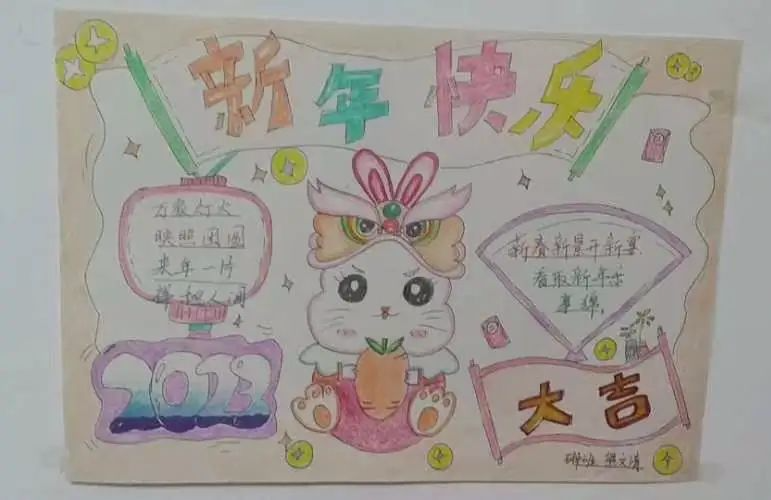 新年快乐
万家灯火
映照团圆
来年一片
祥和人间
新春新景开新宴
看取新年乐
事绵。
2023
大吉